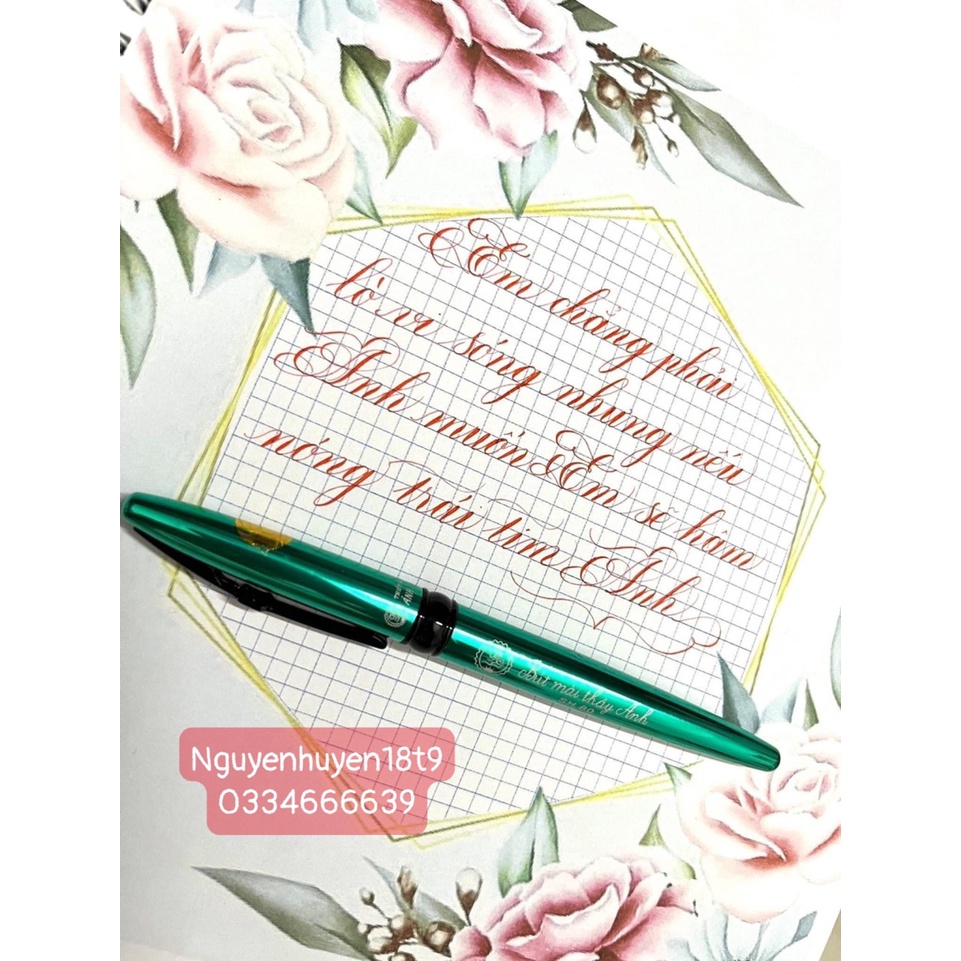 Em chẳng phải
lò vi sóng nhưng nếu
Anh muốn Em sẽ hâm
nóng trái tim Anh
ÁNH
Bút mài thầy Ánh
Nguyenhuyen18t9
0334666639